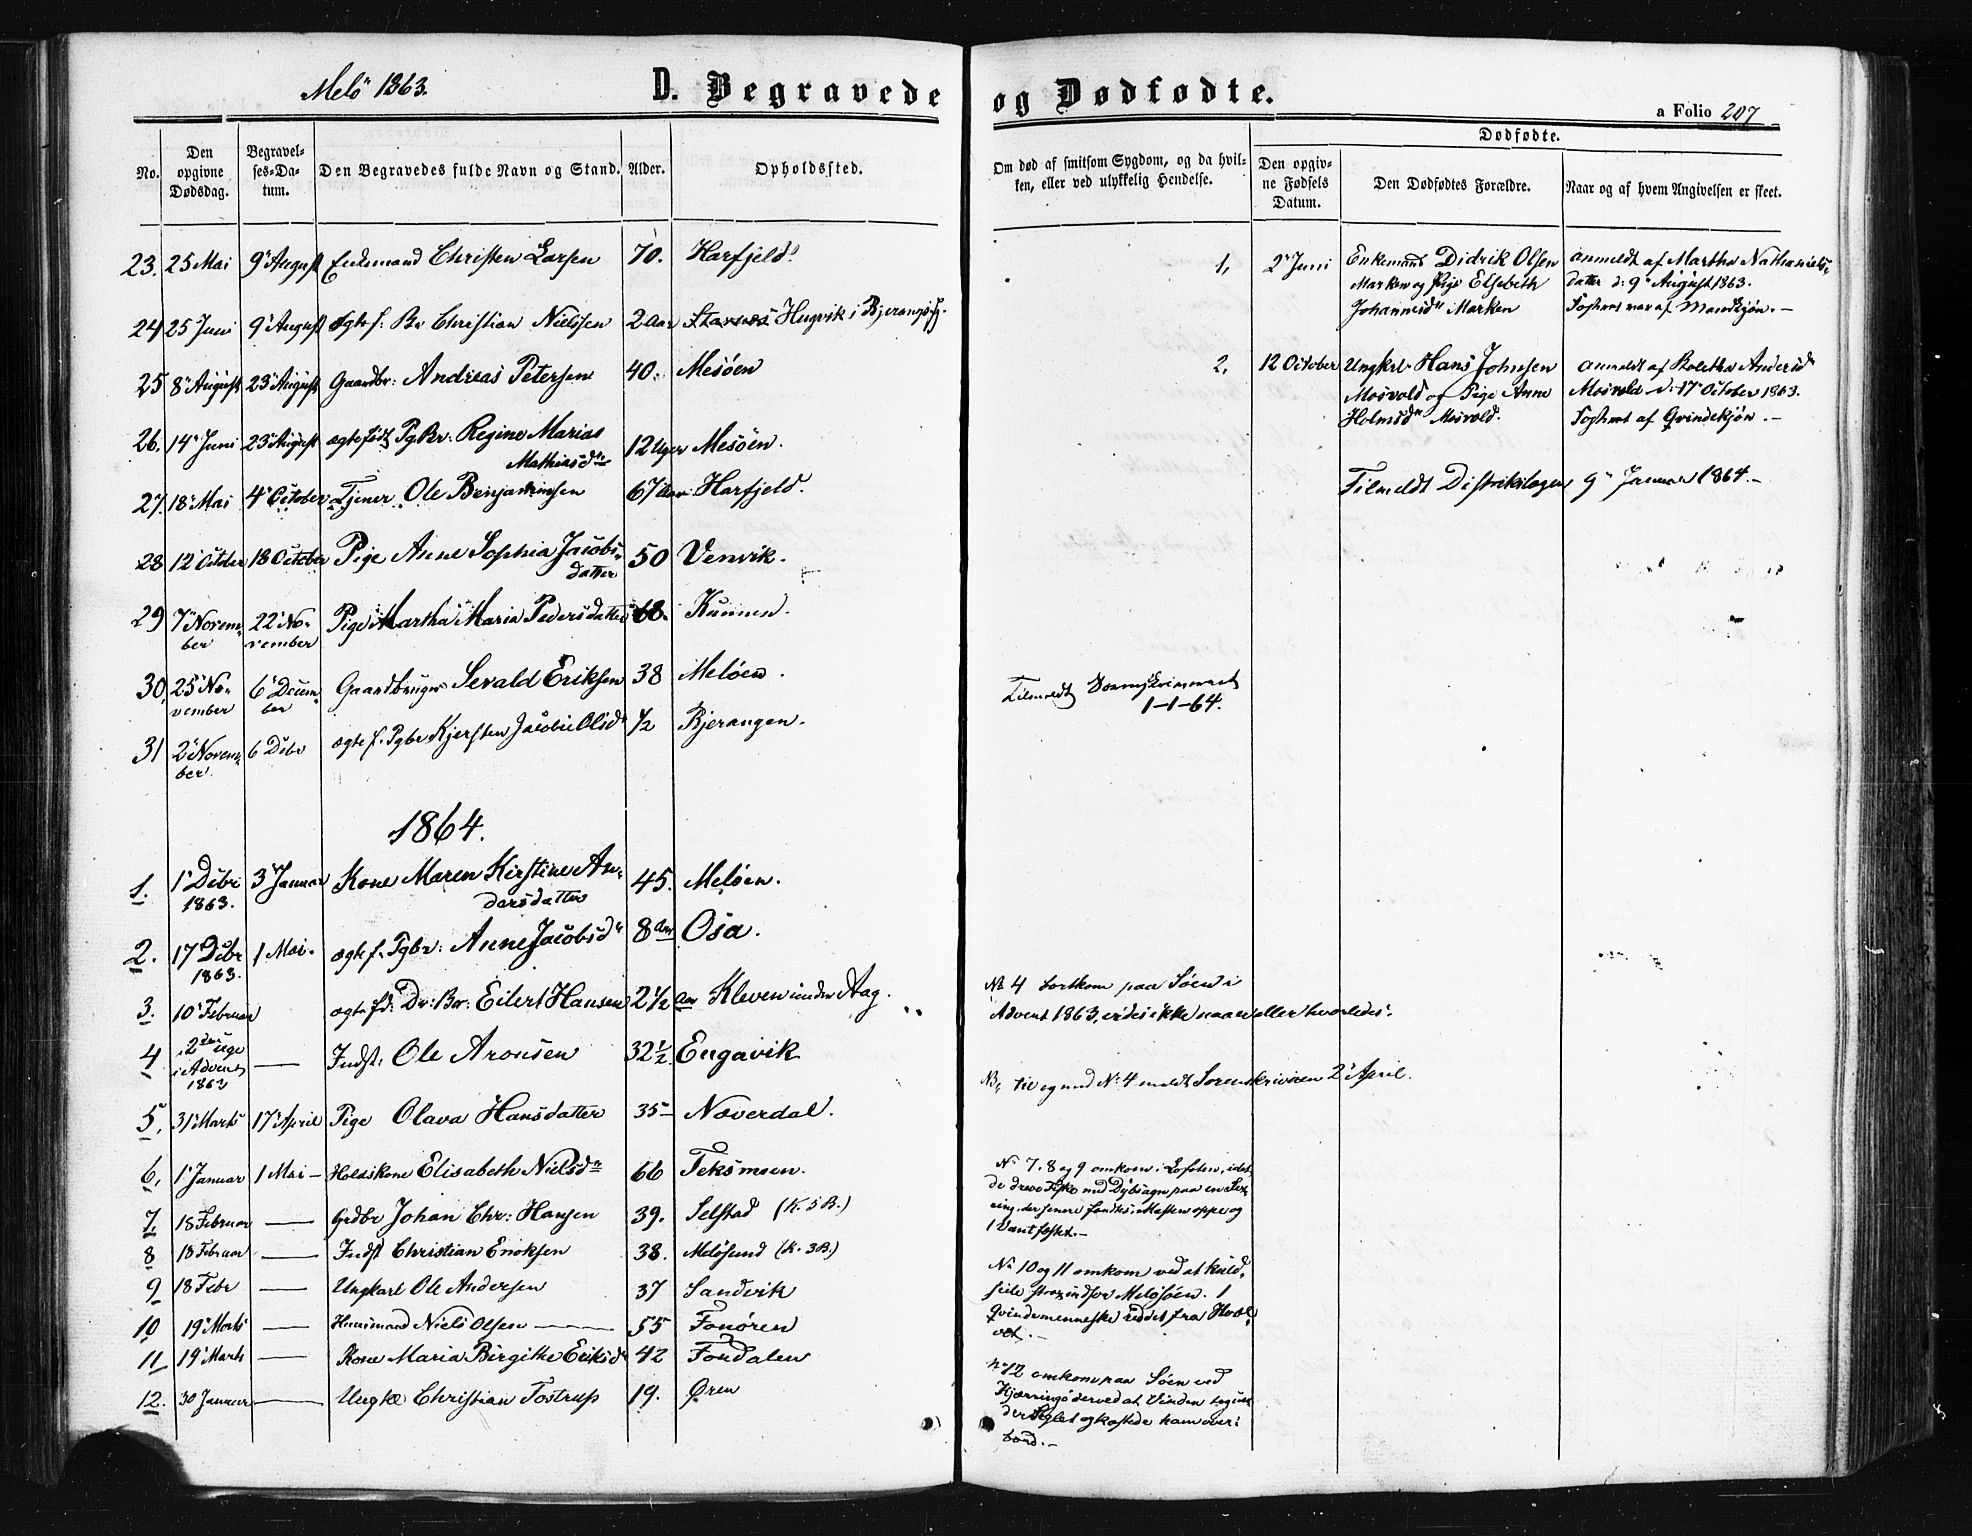 Melö 1863.
D. Begravede og Dødfødte.
a Folio 207
Dødfødte.
No.
Den opgivne Dødsdag.
Begravelses-Datum.
Den Begravedes fulde Navn og Stand.
Alder.
Opholdssted.
Om død af smitsom Sygdom, og da hvilken, eller ved ulykkelig Hendelse.
Den opgivne Fødsels Datum.
Den Dødfødtes Forældre.
Naar og af hvem Angivelsen er skeet.
23. 25 Mai 9 August Enkemand Christen Larsen 70. Harfjeld.
24 25 Juni 9 August ægte f. Br Christian Nielssen 2 Aar Hugvik i Bjerangsfj.
25 8 August 23 August Gaardbr: Andreas Petersen 40. Mesøen
26. 14 Juni 23 August ægte født PgBr. Regine Marias
Mathiasd. 12 Uger Mesöen.
27. 18 Mai 4 October Tjener Ole Benjaminsen 67 Aar Harfjeld.
28 12 October 18 October Pige Anne Sophia Jacobs-
datter 50 Venvik.
29 7 Novem-
ber 22 No-
vember Pige Martha Maria Pedersdatter 68. Kunnen.
30, 25 No-
vember 6 Decem-
ber Gaardbruger Sevald Eriksen 38 Meløen.
31 2 Novem-
ber. 6 Debr ægte f. Pgbr Kjersten Jacobie Olsd 1/2 Bjerangen.
1864.
1. 1 Debr
1863. 3 Januar Kone Maren Kirstine An-
dersdatter 45. Meløen.
2. 17 Debr
1863. 1 Mai. ægte f. Pgbr: Anne Jacobsd 8 Aar Osa.
3. 10 Februar ægte fd: Dr: Br: Eilert Hansen 2 1/2 Aar Kleven under Aag.
4 i 2den Uge
i Advent
1863 — Indst. Ole Aronsen 32 1/2 Engavik
5. 31 Marts 17 April Pige Olava Hansdatter 35 Næverdal.
6. 1 Januar 1 Mai — Elisabeth Nielsd 66 Teksmoen.
7. 18 Februar — Grdbr Johan Chr: Hansen 39. Selstad (K. 3 B.)
8 18 Februar — Indst Christian Enoksen 38. Melösund (K. 3 B.)
9 18 Febr — Ungkarl Ole Andersen 37 Sandvik
10 19 Marts — Huusmand Niels Olsen — 55 Fonören
11 19 Marts — Kone Maria Birgithe Eriksd 42 Fondalen
12. 30 Januar — Ungk Christian Tostrup 19. Øren
Tilmeldt
1-1-64.
No 4 bortkom paa Söen i
Advent 1863, vides ikke naar eller hvorledes.
NB. meldt Sorenskriveren 2 April.
No 7, 8 og 9 omkom i Lofoten, idet
de drev Fiske med Dybsagn paa en Sex-
ring, der senere fandtes, Masten oppe og
1 Vant fastet.
No 10 og 11 omkom ved at kuld-
seile strax indfor Melöen. 1
Qvindemenneske reddet fra Hvæl-
vet.
No 12 omkom paa Söen ved
Hjærringö derved at Vinden tog un-
der Seglet og kastede ham over-
bord.
1, 2 Juni Enkemand Didrik Olsen
Marken og Pige Elsebeth
Johannesd Marken
anmeldt af Martha Nathaniels-
datter d: 9 August 1863.
Fosteret var af Mandkjøn.
2. 12 October Ungkrl Hans Johnsen
Mosvold og Pige Anne
Holmsd Mosvold.
anmeldt af Andersd
Mosvold d: 17 October 1863.
Fosteret af Qvindekjøn.
Tilmeldt Distriktslægen 9 Januar 1864.